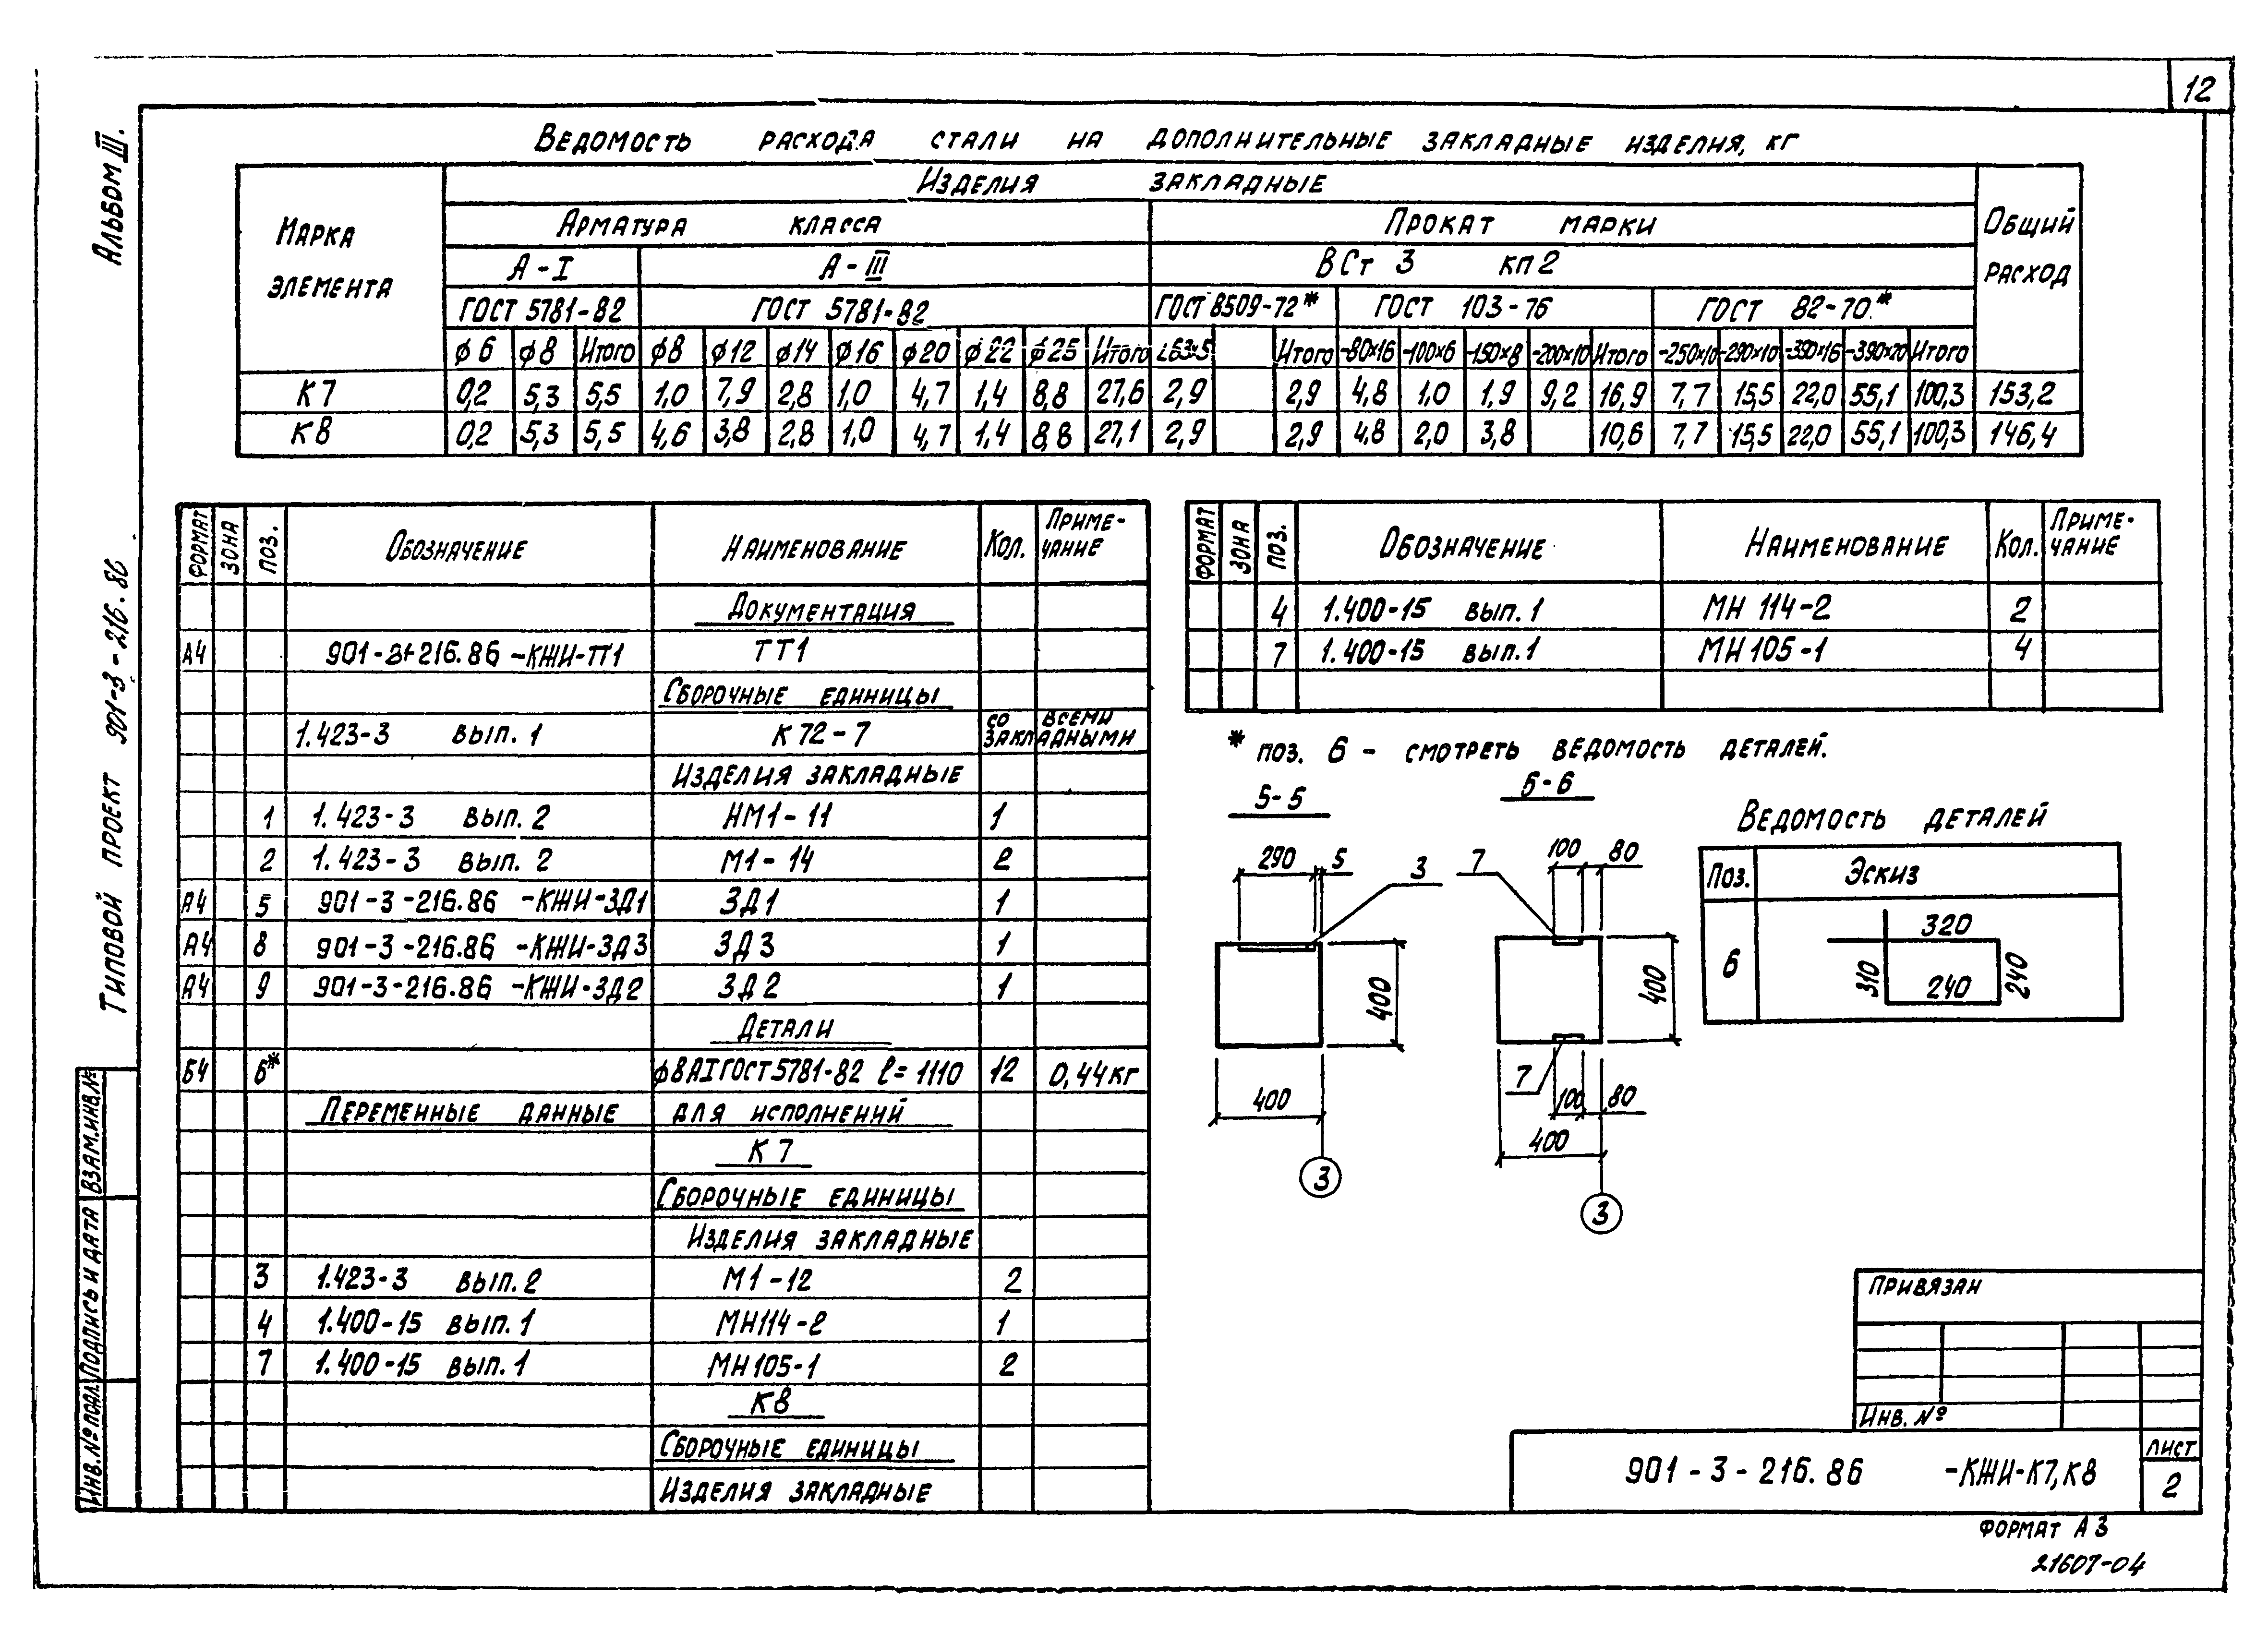 12
Альбом III.
Типовой проект 901-3-216.86
Ведомость расхода стали на дополнительные закладные изделия, кг
Марка элемента
Изделия закладные
Общий расход
Арматура класса
Прокат марки
А-I
А-III
ВСт 3 кп2
ГОСТ 5781-82
ГОСТ 5781-82
ГОСТ 8509-72*
ГОСТ 103-76
ГОСТ 82-70*
ϕ6 ϕ8 Итого ϕ8 ϕ12 ϕ14 ϕ16 ϕ20 ϕ22 ϕ25 Итого L63x5 Итого -80x16 -100x6 -150x8 -200x10 Итого -250x10 -290x10 -390x16 -390x20 Итого
К7 0,2 5,3 5,5 1,0 7,9 2,8 1,0 4,7 1,4 8,8 27,6 2,9 2,9 4,8 1,0 1,9 9,2 16,9 7,7 15,5 22,0 55,1 100,3 153,2
К8 0,2 5,3 5,5 4,6 3,8 2,8 1,0 4,7 1,4 8,8 27,1 2,9 2,9 4,8 2,0 3,8 10,6 7,7 15,5 22,0 55,1 100,3 146,4
Формат Зона Поз. Обозначение Наименование Кол. Примечание
Документация
А4 901-3-216.86 -КЖИ-ТТ1 ТТ1
Сборочные единицы
1.423-3 вып. 1 К72-7 со всеми закладными
Изделия закладные
1 1.423-3 вып. 2 НМ1-11 1
2 1.423-3 вып. 2 М1-14 2
А4 5 901-3-216.86 -КЖИ-ЗД1 ЗД1 1
А4 8 901-3-216.86 -КЖИ-ЗД3 ЗД3 1
А4 9 901-3-216.86 -КЖИ-ЗД2 ЗД2 1
Детали
Б4 6* ϕ8АI ГОСТ 5781-82 ℓ=1110 12 0,44кг
Переменные данные для исполнений
К7
Сборочные единицы
Изделия закладные
3 1.423-3 вып. 2 М1-12 2
4 1.400-15 вып. 1 МН114-2 1
7 1.400-15 вып. 1 МН105-1 2
К8
Сборочные единицы
Изделия закладные
Формат Зона Поз. Обозначение Наименование Кол. Примечание
4 1.400-15 вып. 1 МН 114-2 2
7 1.400-15 вып. 1 МН105-1 4
* поз. 6 - смотреть ведомость деталей.
5-5
290 5
3
400
400
3
6-6
100 80
7
400
7
100 80
400
3
Ведомость деталей
Поз. Эскиз
6
320
310
240
240
Привязан
Инв. №
901-3-216.86 -КЖИ-К7,К8
Лист
2
Формат А3
21607-04
Взам.инв.№
Подпись и дата
Инв.№ подл.